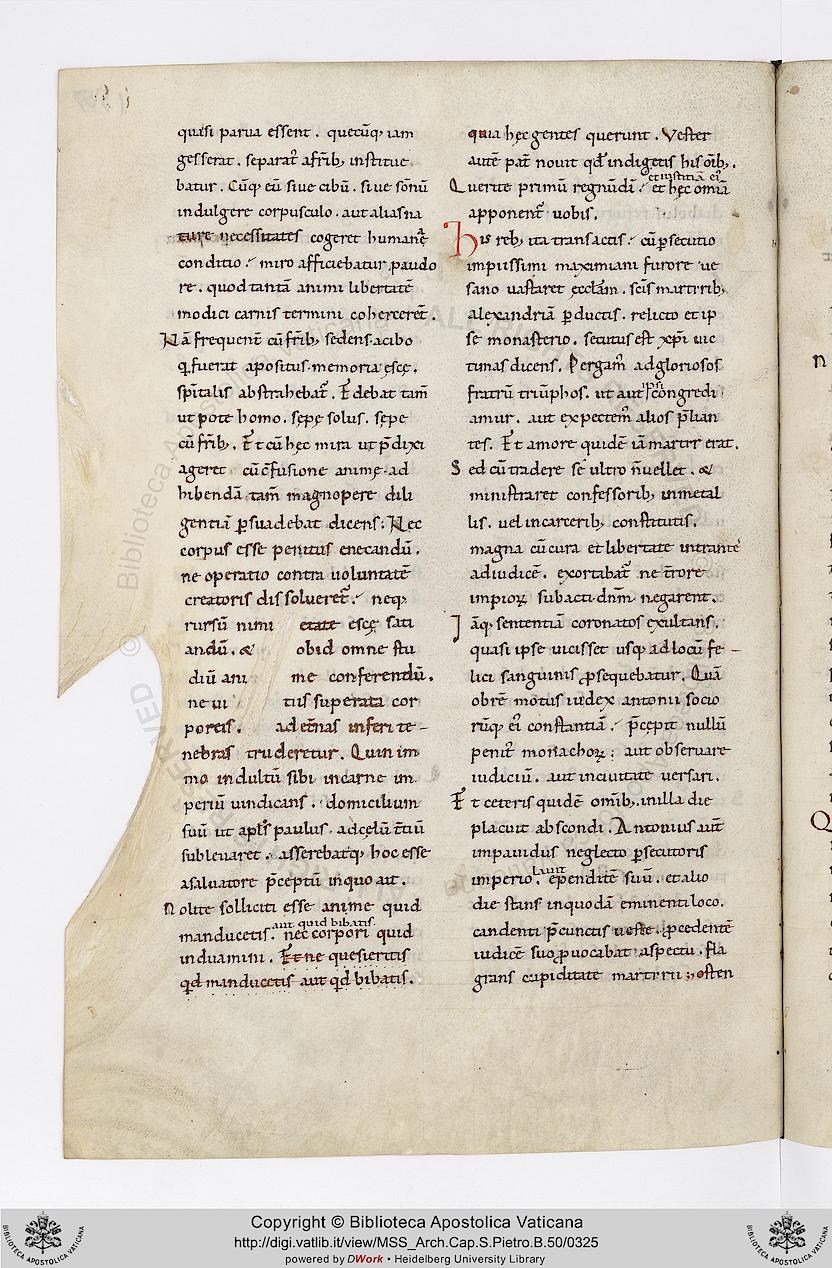 quasi parua essent. quecūq; iam
gesserat. separat᷑ a fr̄ib; institue
batur. Cūq; eū siue cibū. siue sōnū
indulgere corpusculo. aut alias na
ture necessitates cogeret humanę
conditio. miro afficiebatur pudo
re. quod tantā animi libertatē
modici carnis termini cohercerēt.
Nā frequent̄ cū fr̄ib; sedens. a cibo
q fuerat apositus. memoria escę
sp̄italis abstrahebat᷑. Edebat tam̄
ut pote homo. sępe solus. sępe
cū fr̄ib;. Et cū hęc mira ut p̄dixi
ageret cū c̄fusione animę. ad
hibendā tam̄ magnopere dili
gentiā ꝑsuadebat dicens: Nec
corpus esse penitus enecandū.
ne operatio contra uoluntatē
creatoris dissolueret᷑. neq;
rursū nimi etate escę sati
andū. & ob id omne stu
diū ani me conferendū.
ne ui tiis superata cor
poreis. ad et̄nas inferi te-
nebras truderetur. Quin im
mo indultū sibi in carne im
periū uindicans. domicilium
suū ut apl̄s paulus. ad cęlū t̄tiū
subleuaret. asserebatq; hoc esse
a saluatore p̄ceptū in quo ait.
Nolite solliciti esse anime quid
aut quid bibatis.
manducetis. nec corpori quid
induamini. Et ne quesieritis
qd manducetis aut qd bibatis.
quia hęc gentes querunt. Vester
autē pat᷑ nouit qd̄ indigetis his om̄ib;.
et iustitiā ei᷒
Querite primū regnū di. et hęc omīa
apponent᷑ uobis.
His reb; ita transactis. cū ꝑsecutio
impiissimi maximiani furore ue
sano uastaret ęccl̄am. sc̄is martirib;
alexandriā ꝑductis. relicto et ip
se monasterio. secutus est xp̄i uic
timas dicens. Pergam᷒ ad gloriosos
fratrū triūphos. ut aut ip̄i congredi
amur. aut expectem᷒ alios p̄lian
tes. Et amore quidē iā martir erat.
Sed cū tradere se ultro n̄ uellet. &
ministraret confessorib; in metal
lis. uel in carcerib; constitutis.
magna cū cura et libertate intrantē
ad iudicē. exortabat᷑ ne t̄rore
impioꝝ subacti. dn̄m negarent.
Iāq; sententiā coronatos exultans.
quasi ipse uicisset usq; ad locū fe-
lici sanguinis ꝓsequebatur. Quā
obrē motus iudex antonii socio
rūq; ei᷒ constantiā. p̄cepit nullū
penit᷒ monachoꝝ: aut obseruare
iudiciū. aut in ciuitate uersari.
Et ceteris quidē om̄ib; in illa die
placuit abscondi. Antonius aut̄
impauidus neglecto ꝑsecutoris
lauit
imperio. ependitē suū. et alio
die stans in quodā eminenti loco.
candenti p̄cunctis ueste. ꝓcedentē
iudicē suo ꝓuocabat aspectu. fla
grans cupiditate martirii; osten
Copyright © Biblioteca Apostolica Vaticana
http://digi.vatlib.it/view/MSS_Arch.Cap.S.Pietro.B.50/0325
powered by DWork • Heidelberg University Library